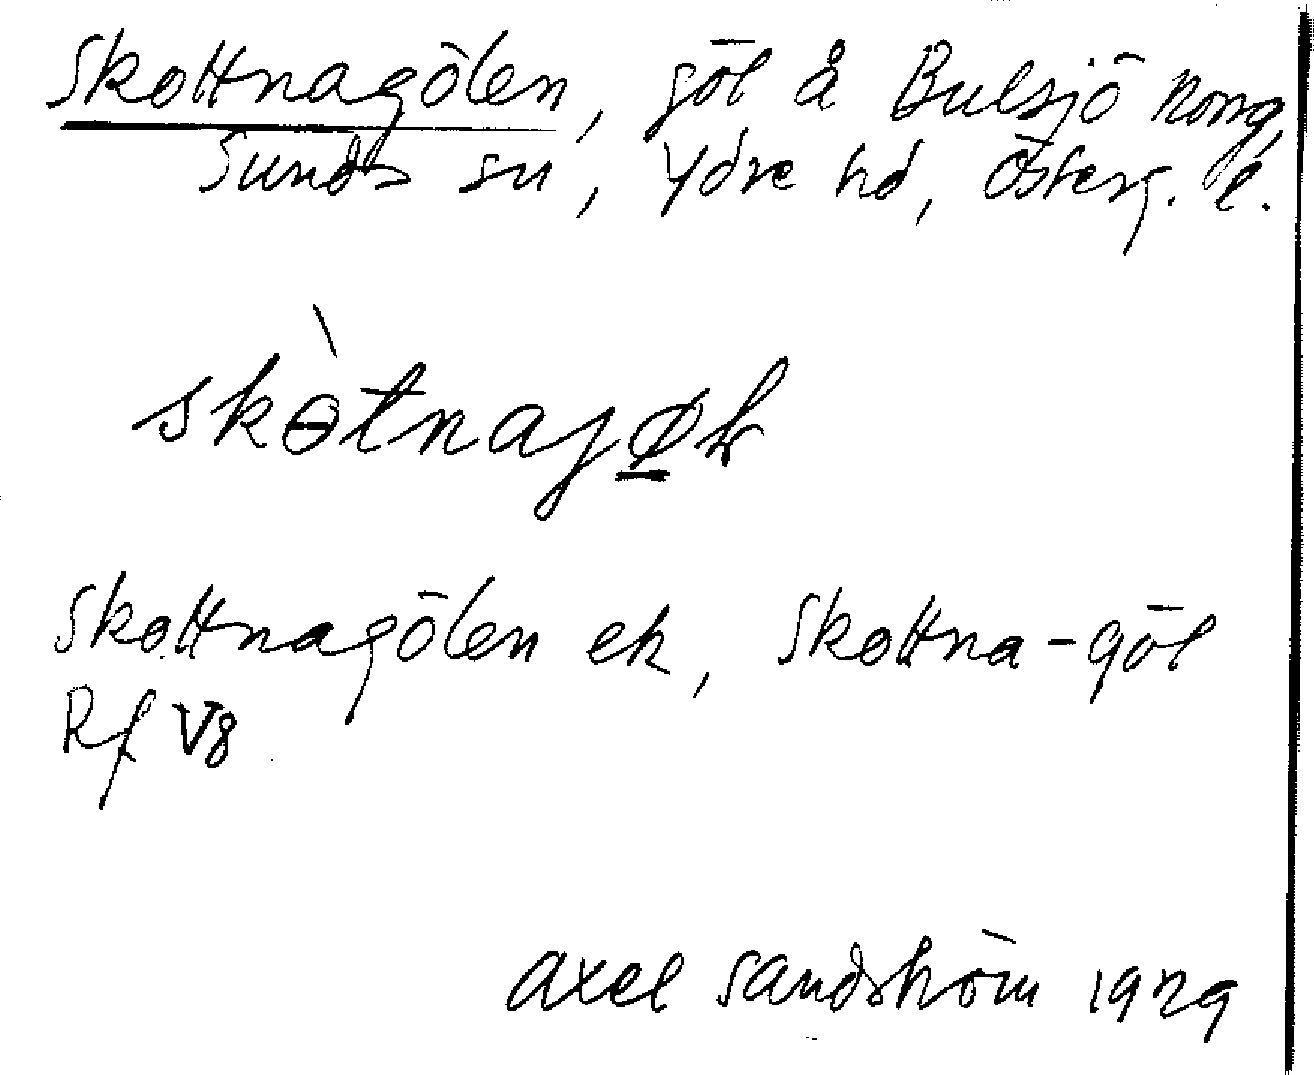 Skottnagölen, göl å Bulsjö
Sunds sn, Ydre hd, Österg. l.
skòtnajøln
Skottnagölen ek, Skottna-göl
Rf V8
Axel Sandström 1929